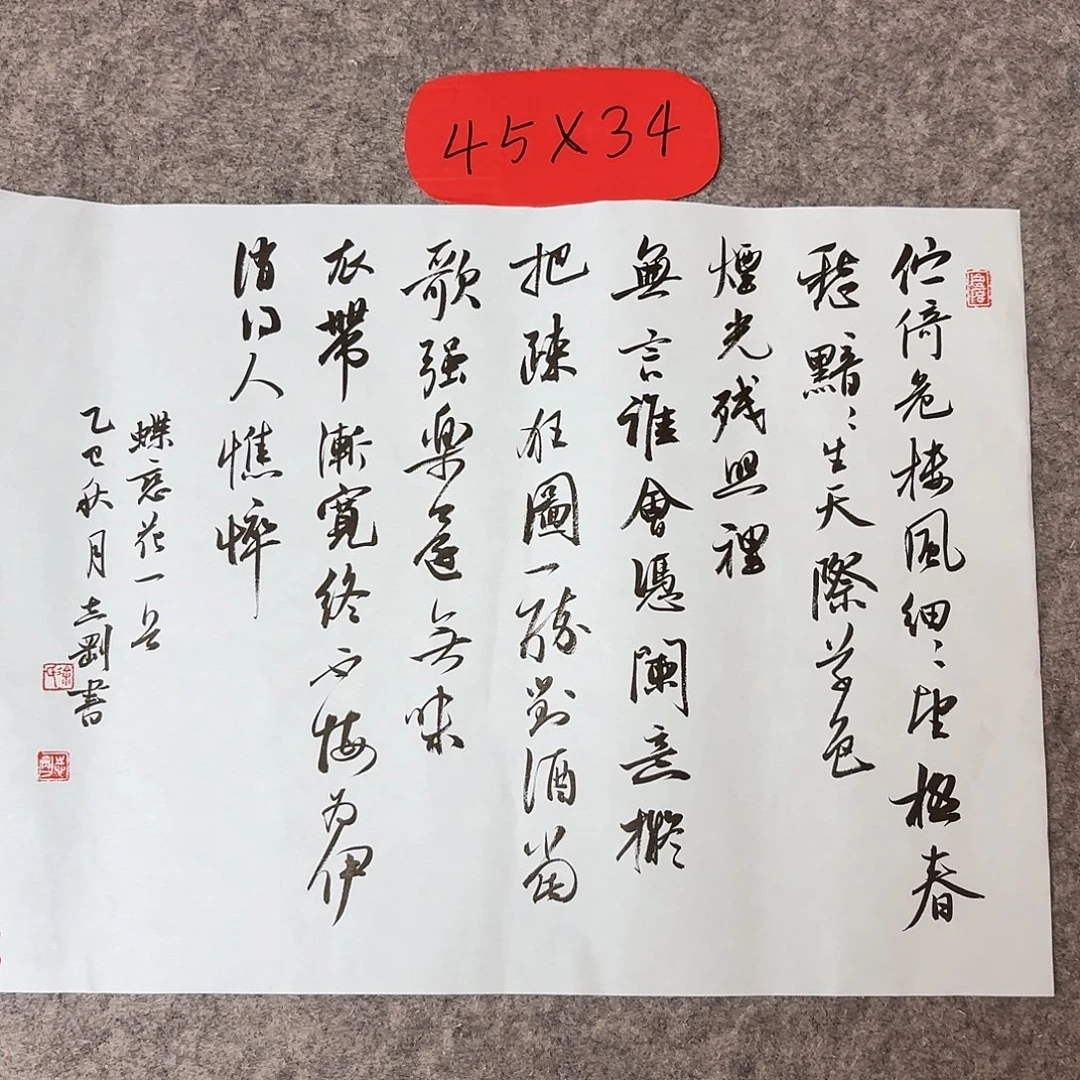 45X34
伫倚危楼風細〻望極春
愁黯〻生天際草色
煙光残照裡
無言誰會憑闌意擬
把疎狂圖一醉對酒當
歌强樂還無味
衣帶漸寬終不悔为伊
消得人憔悴
蝶恋花一首
乙巳秋月志剛書